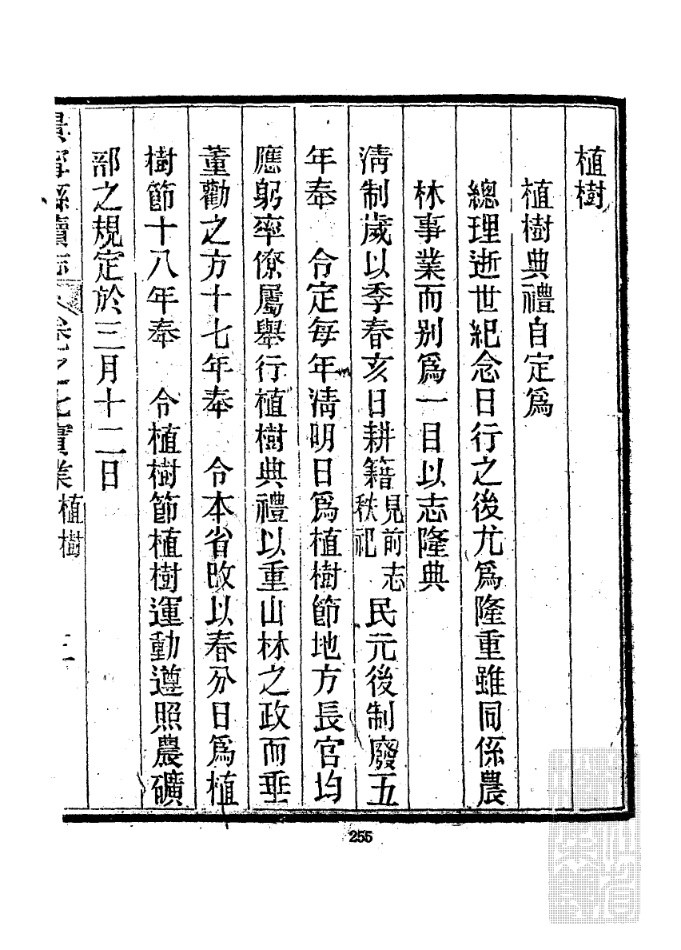 植樹
植樹典禮自定爲
總理逝世紀念日行之後尤爲隆重雖同係農
林事業而別爲一目以志隆典
淸制歲以季春亥日耕籍見前志秩祀民元後制廢五
年奉　令定每年淸明日爲植樹節地方長官均
應躬率僚屬舉行植樹典禮以重山林之政而垂
董勸之方十七年奉　令本省改以春分日爲植
樹節十八年奉　令植樹節植樹運動遵照農礦
部之規定於三月十二日
景寧縣續志　卷之七實業植樹　三
255